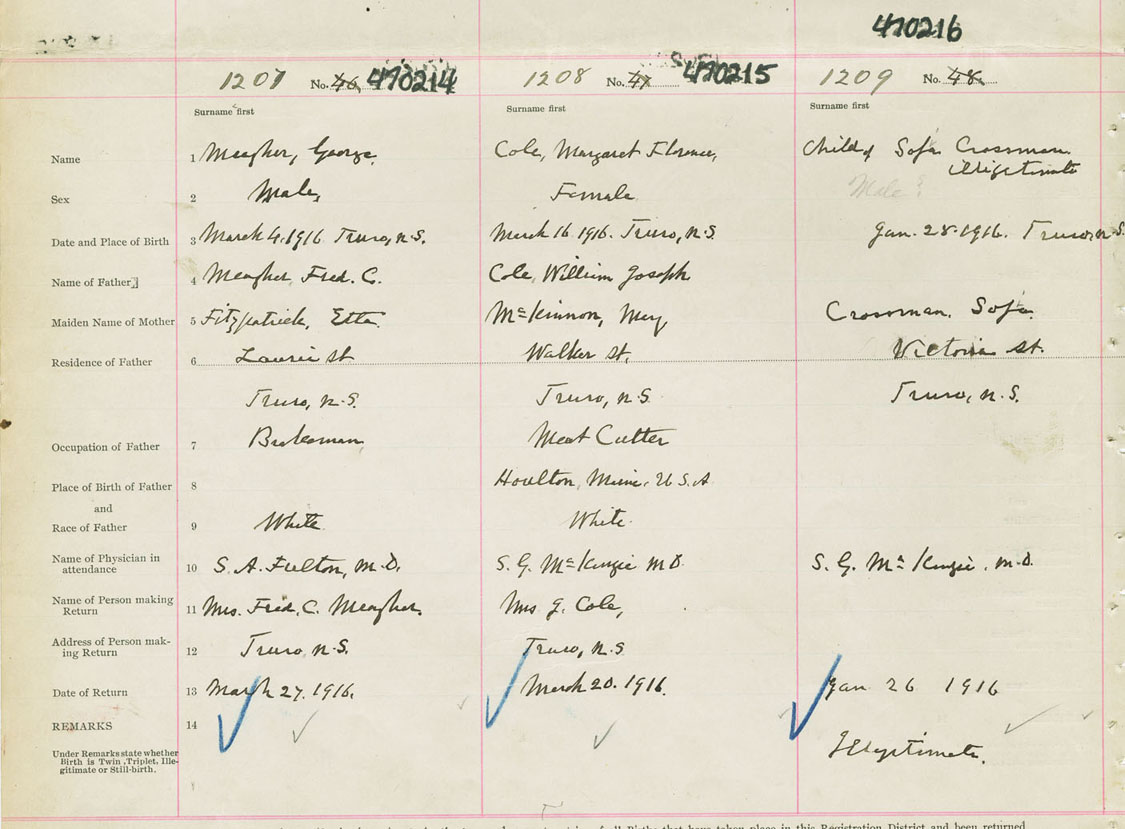 470216
1207 No. 46 470214 1208 No. 47 470215 1209 No. 48
Surname first Surname first Surname first
Name 1 Meagher, George. Cole, Margaret Florence, Child of Sofia Crossman
illigetimate
Sex 2 Male, Female. Male?
Date and Place of Birth 3 March 4. 1916. Truro, N.S. March 16 1916. Truro, N.S. Jan. 28. 1916. Truro, N.S.
Name of Father 4 Meagher, Fred. C. Cole, William Joseph
Maiden Name of Mother 5 Fitzpatrick, Etta. McKinnon, May Crossman, Sofia.
Residence of Father 6 Laurie st Walker st, Victoria st.
Truro, N.S. Truro, N.S. Truro, N.S.
Occupation of Father 7 Brakeman, Meat Cutter
Place of Birth of Father 8 Houlton, Maine, U S. A
and
Race of Father 9 White White.
Name of Physician in
attendance 10 S. A. Fulton, M.D. S. G. McKenzie M D. S. G. McKenzie. M.D.
Name of Person making
Return 11 Mrs. Fred. C. Meagher, Mrs J. Cole,
Address of Person mak-
ing Return 12 Truro, N.S. Truro, N.S
Date of Return 13 March 27. 1916. March 20. 1916. Jan 26 1916
REMARKS 14
Under Remarks state whether
Birth is Twin, Triplet, Ille-
gitimate or Still-birth.
Illegitimate.
all Births that have taken place in this Registration District and been returned